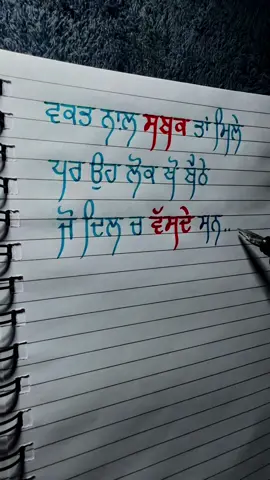 ਵਕਤ ਨਾਲ ਸਬਕ ਤਾਂ ਮਿਲੇ
ਪਰ ਉਹ ਲੋਕ ਖੋ ਬੈਠੇ
ਜੋ ਦਿਲ ਚ ਵੱਸਦੇ ਸਨ..